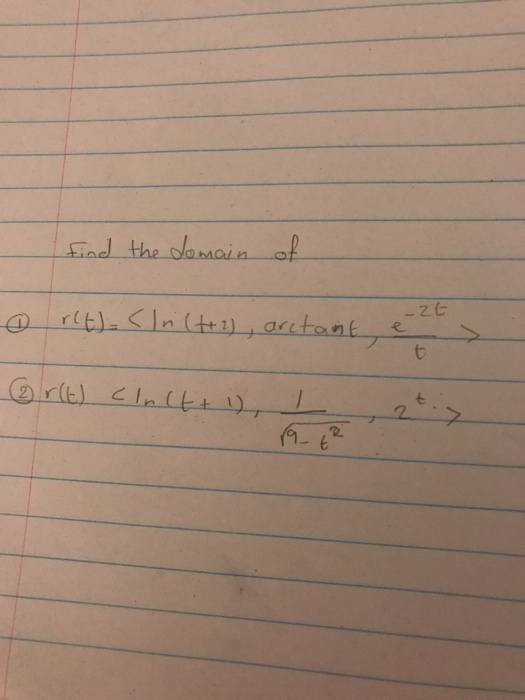 Find the domain of
① r(t)=<ln(t+2), arctant, e^-2t/t>
② r(t) <ln(t+1), 1/√9-t², 2^t.>